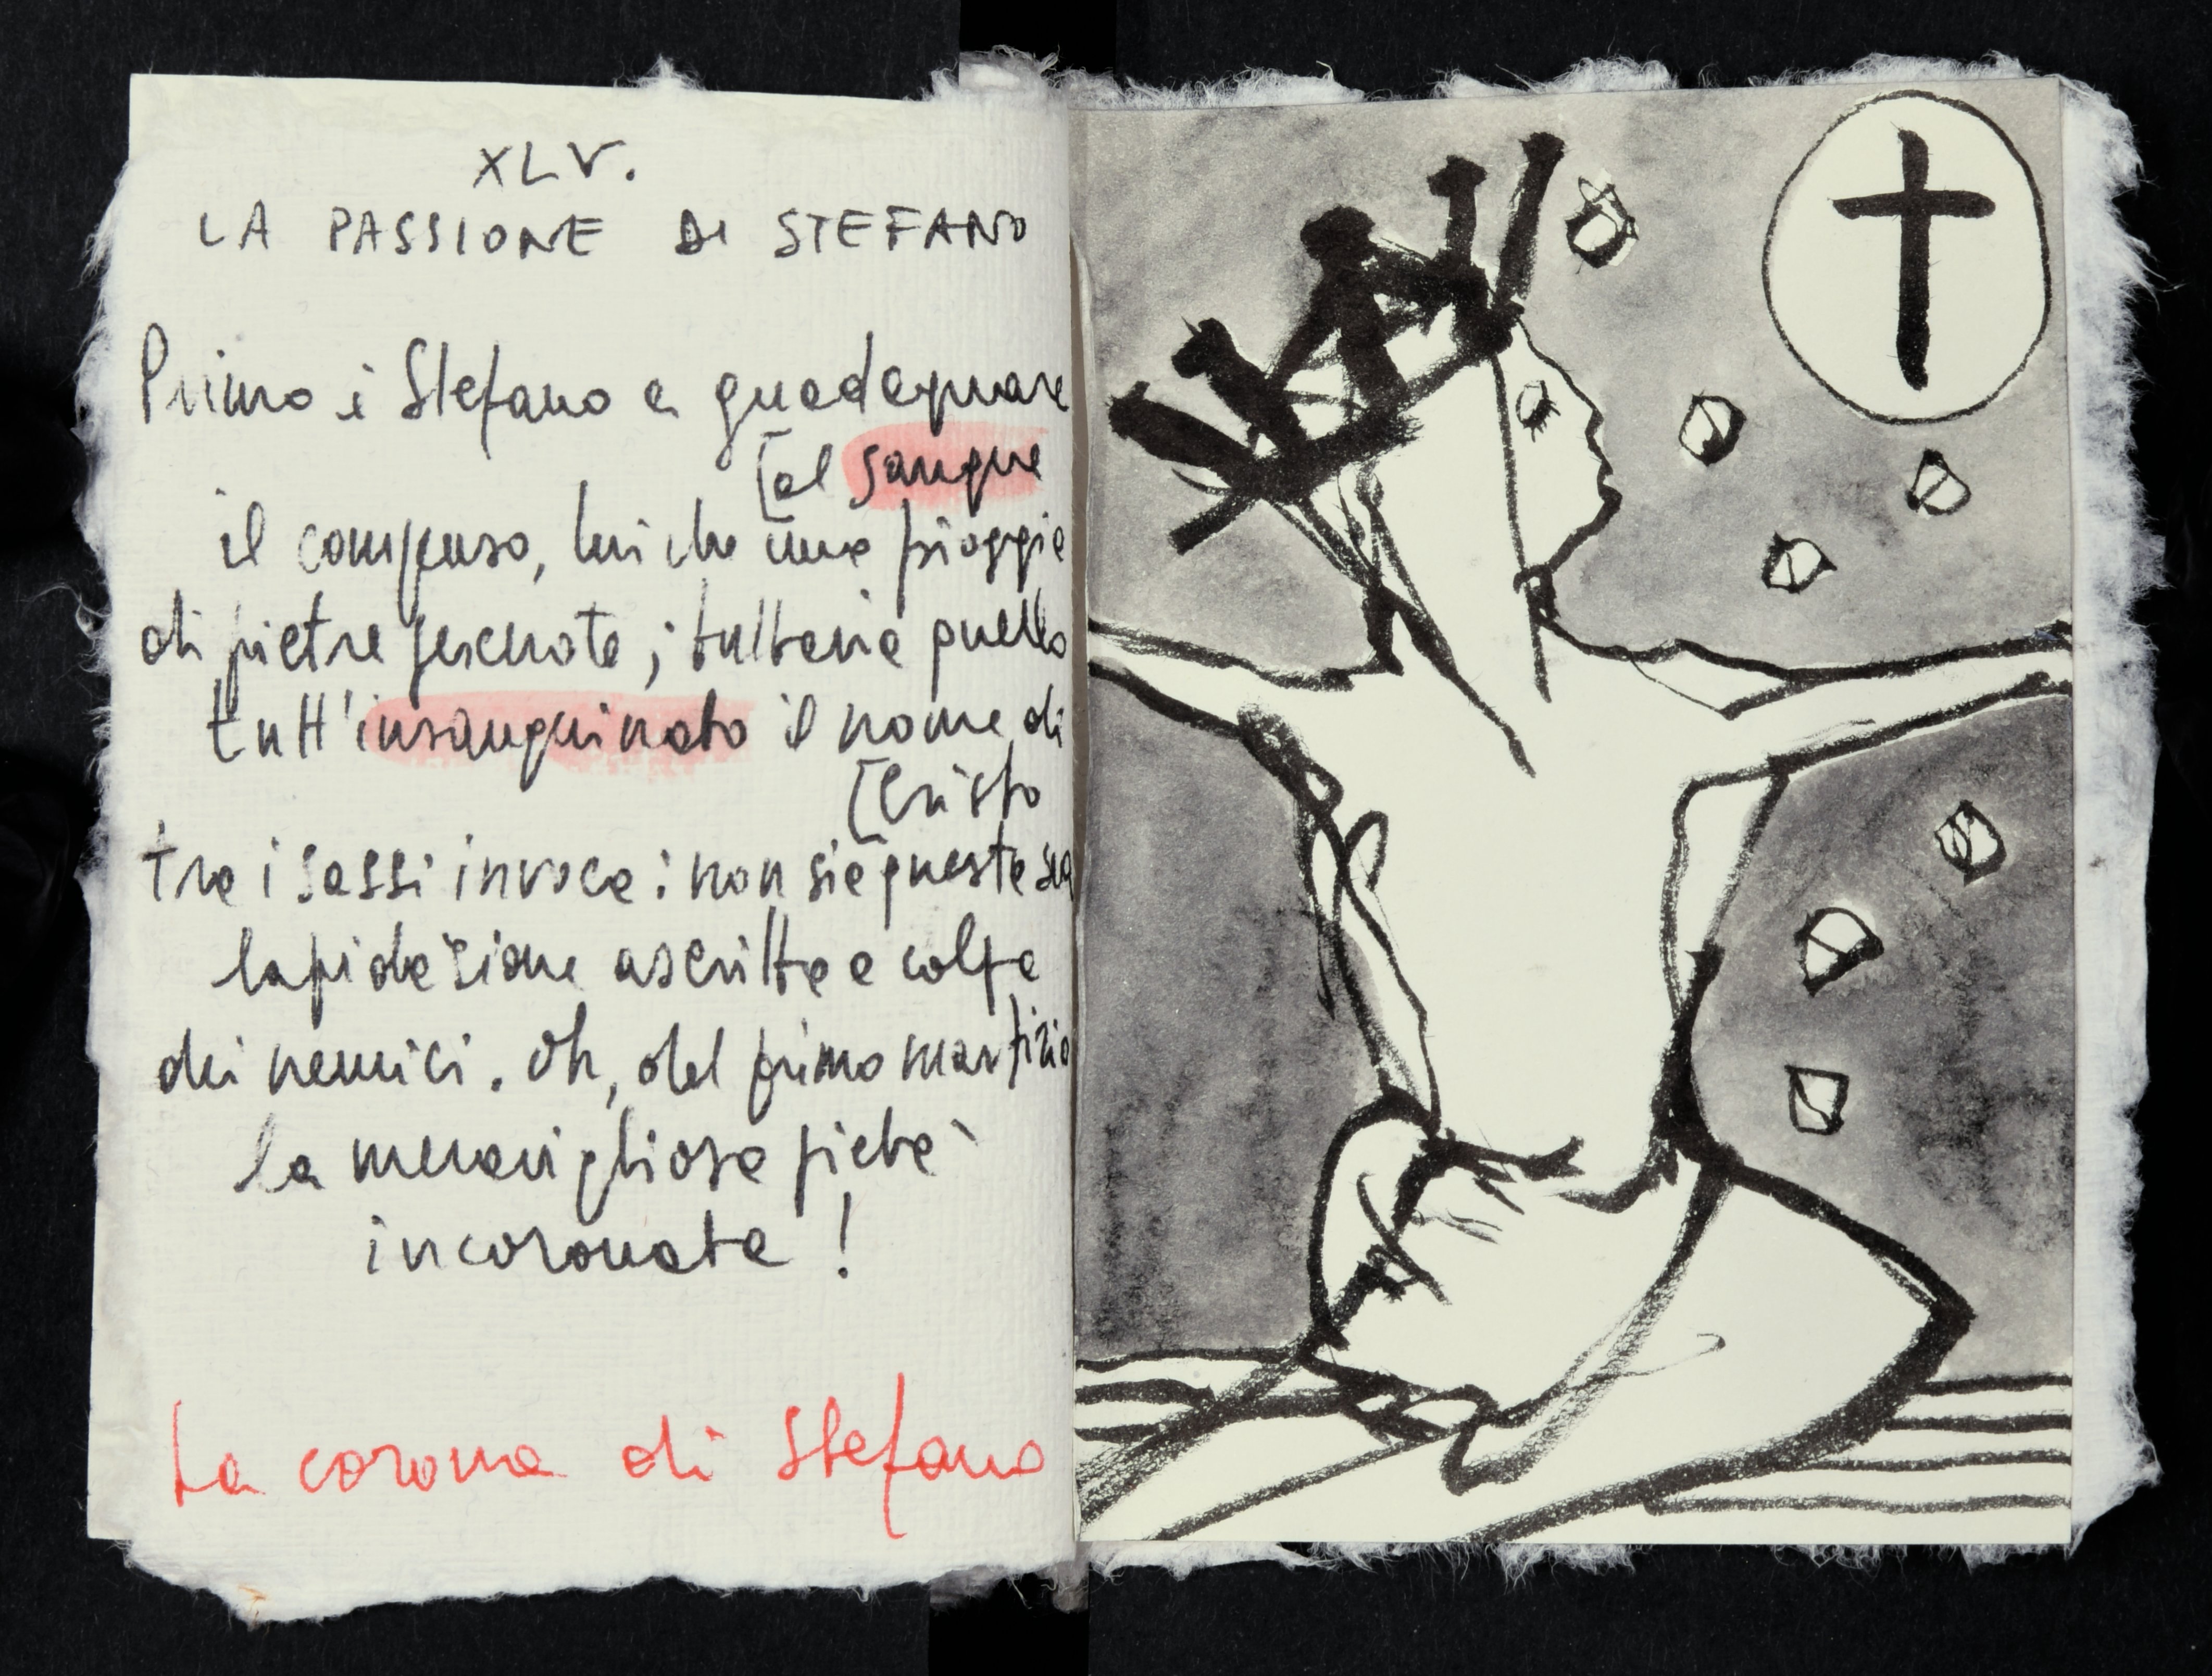 XLV.
LA PASSIONE DI STEFANO
Primo è Stefano a guadagnare
[al sangue
il compenso, lui che una pioggia
di pietre; tuttavia quello
tutt'insanguinato il nome di
[Cristo
tra i sassi invoca: non sia questa sua
lapidazione ascritta a colpa
dei nemici. Oh, del primo martirio
la meravigliosa pietà
incoronata!
La corona di Stefano